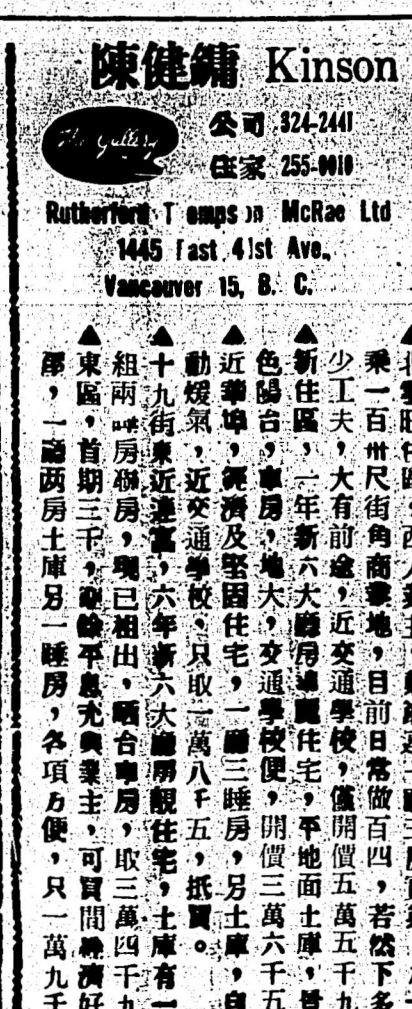 陳健鏞 Kinson
The Gallery
公司 324-2441
住家 255-0010
Rutherford McRae Ltd
1445 East 41st Ave.,
Vancouver 15, B. C.
乘一百卅尺街角商業地，目前日常做百四，若然下多
少工夫，大有前途，近交通學校，僅開價五萬五千九
▲新住區，一年新六大廳房 住宅，平地面土庫，
色陽台，車房，地大，交通學校便，開價三萬六千五
▲近華埠，經濟及堅固住宅，一廳三睡房，另土庫，自
動煖氣，近交通學校，只取一萬八千五，抵買。
▲十九街東近 ，六年新六大廳房靚住宅，土庫有一
組兩 房聯房，現已租出，晒台車房，取三萬四千九
▲東區，首期三千， 餘平息充與業主，可買間 濟好
屋，一廳两房土庫另一睡房，各項方便，只一萬九千